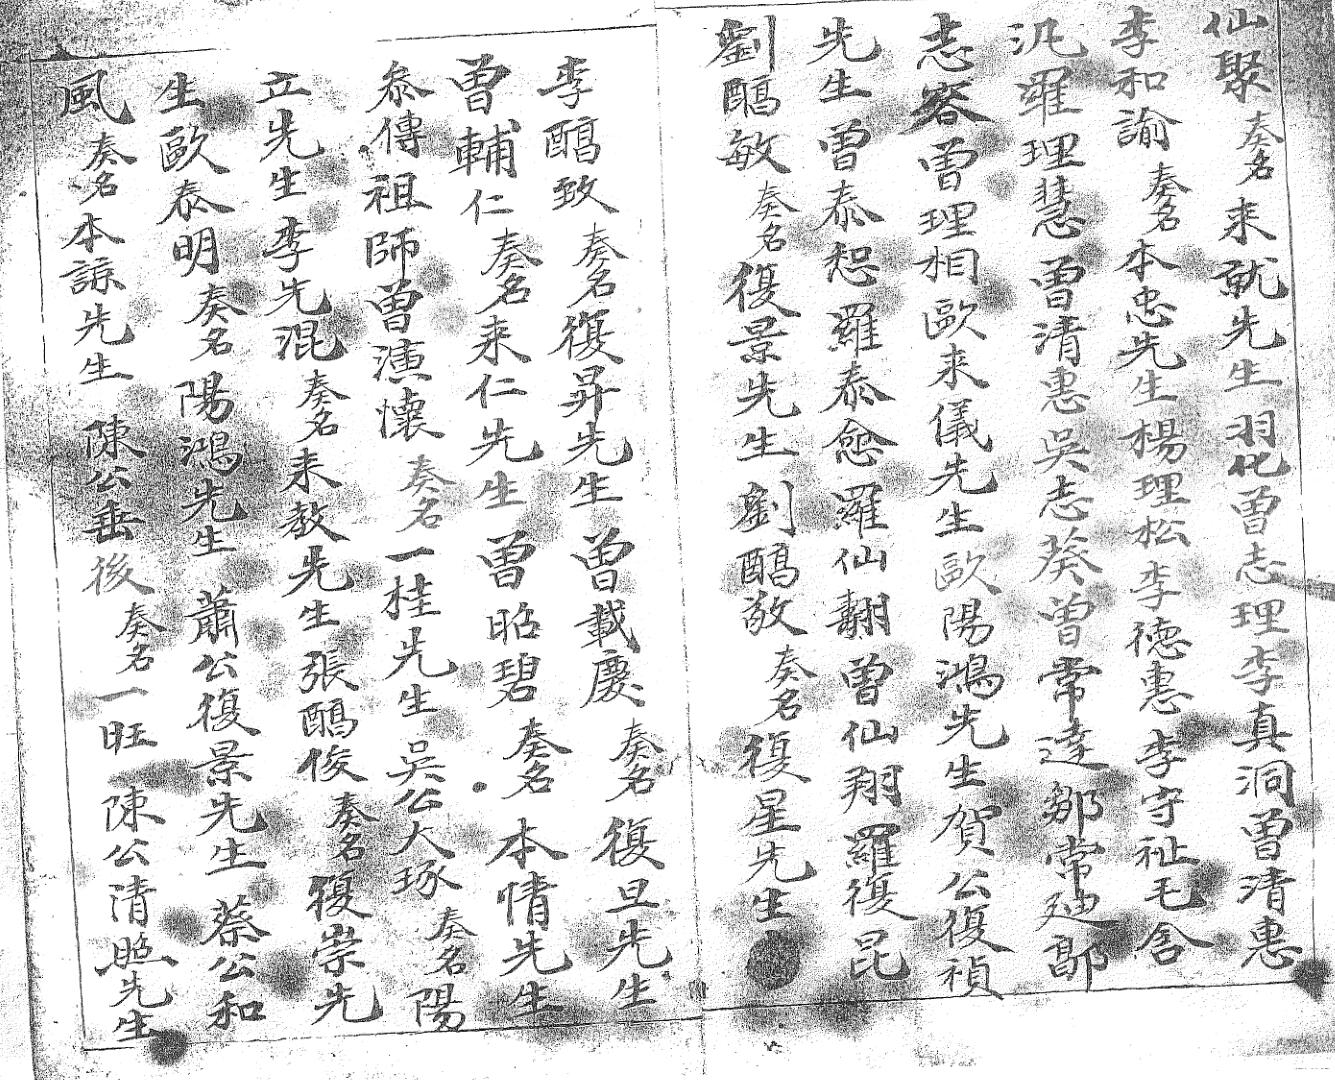 仙聚奏名来就先生羽化曾志理李真洞曾清惠
李和諭奏名本忠先生楊理松李德惠李守祉毛含
汎羅理慧曾清惠吳志葵曾常達鄒常廸鄗
志容曾理相歐来儀先生歐陽鴻先生賀公復禎
先生曾泰恕羅泰愈羅仙翿曾仙翔羅復昆
劉醕敏奏名復景先生劉醕敬奏名復星先生
李醕致奏名復昇先生曾載慶奏名復旦先生
曾輔仁奏名来仁先生曾昭碧奏名本情先生
叅傳祖師曾演懷奏名一桂先生吳公大琢奏名陽
立先生李先混奏名来教先生張醕俊奏名復崇先
生歐泰明奏名陽鴻先生蕭公復景先生蔡公和
風奏名本諒先生陳公垂後奏名一旺陳公清照先生